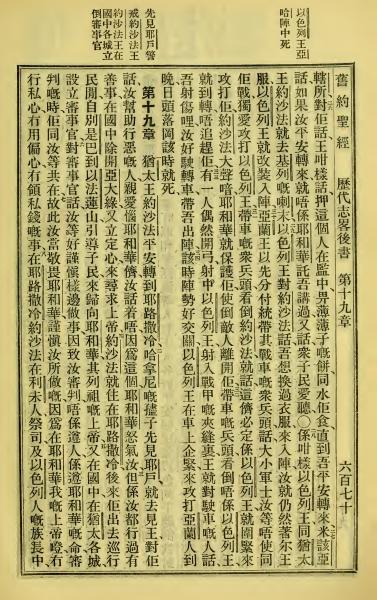 以色列王亞
哈陣中死
先見耶戶警
戒約沙法王
約沙法王在
國中各城立
倒審事官
舊約聖經 歷代志畧後書 第十九章 六百七十
轄所對佢話王咁樣話押這個人在監中畀薄薄子嘅餅同水佢食直到吾平安轉來米該亞
話如果汝平安轉來就唔係耶和華託吾講過又話衆子民愛聽〇係咁樣以色列王同猶太
王約沙法就去基列嘅喇末以色列王對約沙法話吾想換過衣服來入陣汝就仍然著尔王
服以色列王就改裝入陣亞蘭王以先分付統帶其戰車嘅衆兵頭話大小軍士汝等唔使同
佢戰獨愛攻打以色列王帶車嘅衆兵頭看倒約沙法就話這儕必定係以色列王就團緊來
攻打佢約沙法大聲喑耶和華就保護佢使倒敵人離開佢帶車嘅兵頭看倒唔係以色列王
就到轉唔追趕佢有一人偶然開弓射中以色列王射入戰甲嘅夾縫裏王就對駛車嘅人話
吾射傷哩汝好駛轉車帶吾出陣該時陣勢好交關以色列王在車上企緊來攻打亞蘭人到
晚日頭落岡該時就死
第十九章 猶太王約沙法平安轉到耶路撒冷哈拿尼嘅孻子先見耶戶就去見王對佢
話汝幫助行惡嘅人親愛惱耶和華儕汝話着唔因爲這個耶和華怒氣汝但係汝都行過有
善事在國中除開亞大綠又立定心來尋求上帝約沙法就住在耶路撒冷後來佢出去巡行
民間自別是巴到以法蓮山引導子民來歸向耶和華其列祖嘅上帝又在國中在猶太各城
設立審事官對審事官話汝等好謹愼樣邊做事因致汝審判唔係遵人係遵耶和華嘅命審
判嘅時佢同汝等共在故此汝當敬畏耶和華謹愼汝所做嘅因爲在耶和華我嘅上帝嶝有
行私心有用偏心有領私錢嘅事在耶路撒冷約沙法在利未人祭司及以色列人嘅族長中